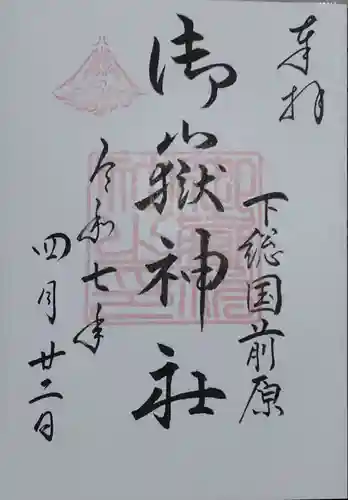 奉拝
下総国前原
御嶽神社
令和七年
四月廿二日